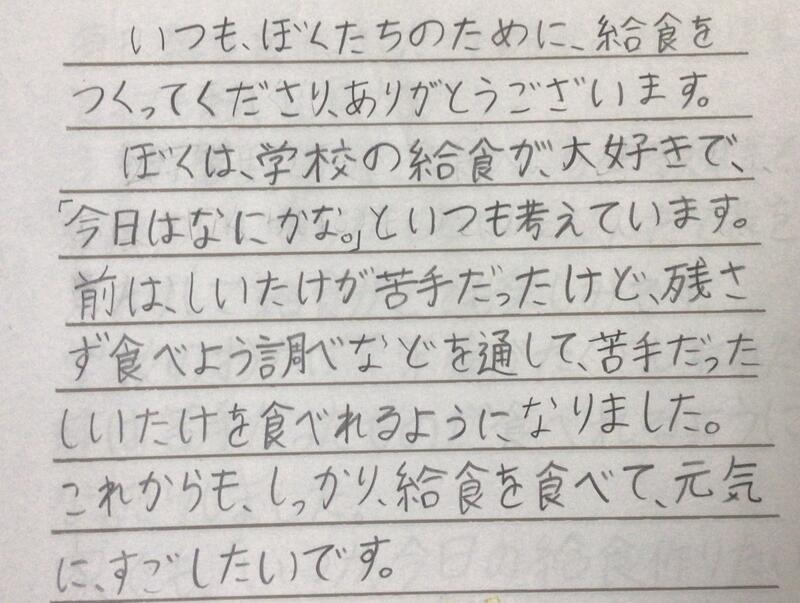 いつも、ぼくたちのために、給食を
つくってくださり、ありがとうございます。
ぼくは、学校の給食が、大好きで、
「今日はなにかな。」といつも考えています。
前は、しいたけが苦手だったけど、残さ
ず食べよう調べなどを通して、苦手だった
しいたけを食べれるようになりました。
これからも、しっかり、給食を食べて、元気
に、すごしたいです。